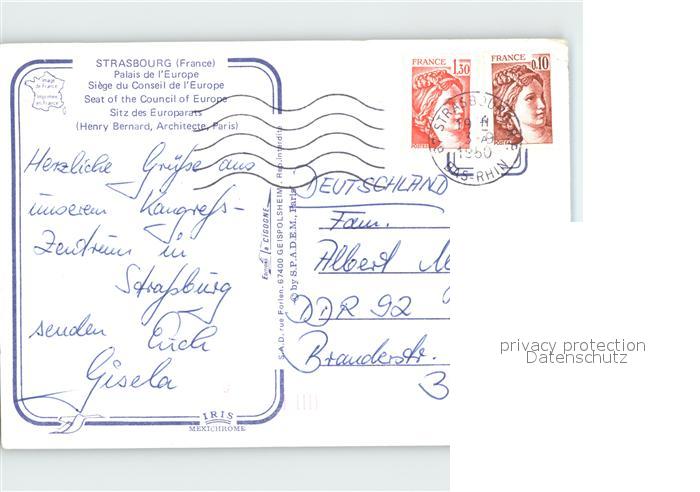 STRASBOURG (France)
Palais de l'Europe
Siège du Conseil de l'Europe
Seat of the Council of Europe
Sitz des Europarats
(Henry Bernard, Architecte, Paris)
image de France
Imprimée en France
FRANCE 1,30
FRANCE 0,10
STRASBOURG
1980
BAS-RHIN
Herzliche Grüße aus
unserem Kongreß-
Zentrum in
Straßburg
senden Euch
Gisela
Éditions La CIGOGNE
S.A.D., rue Forlen, 67400 GEISPOLSHEIM. Rep. interdite
© by S.P.A.D.E.M., Paris
DEUTSCHLAND
Fam.
Albert M
DDR 92
Branderstr.
B
IRIS
MEXICHROME
privacy protection
Datenschutz